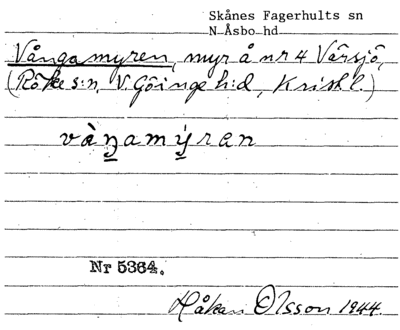 Skånes Fagerhults sn
N Åsbo hd
Vångamyren, myr å nr 4 Vårsjö,
(Röke s:n, V. Göinge h:d, Kristl.)
vàŋamýren
Nr 5364.
Håkan Olsson 1944.